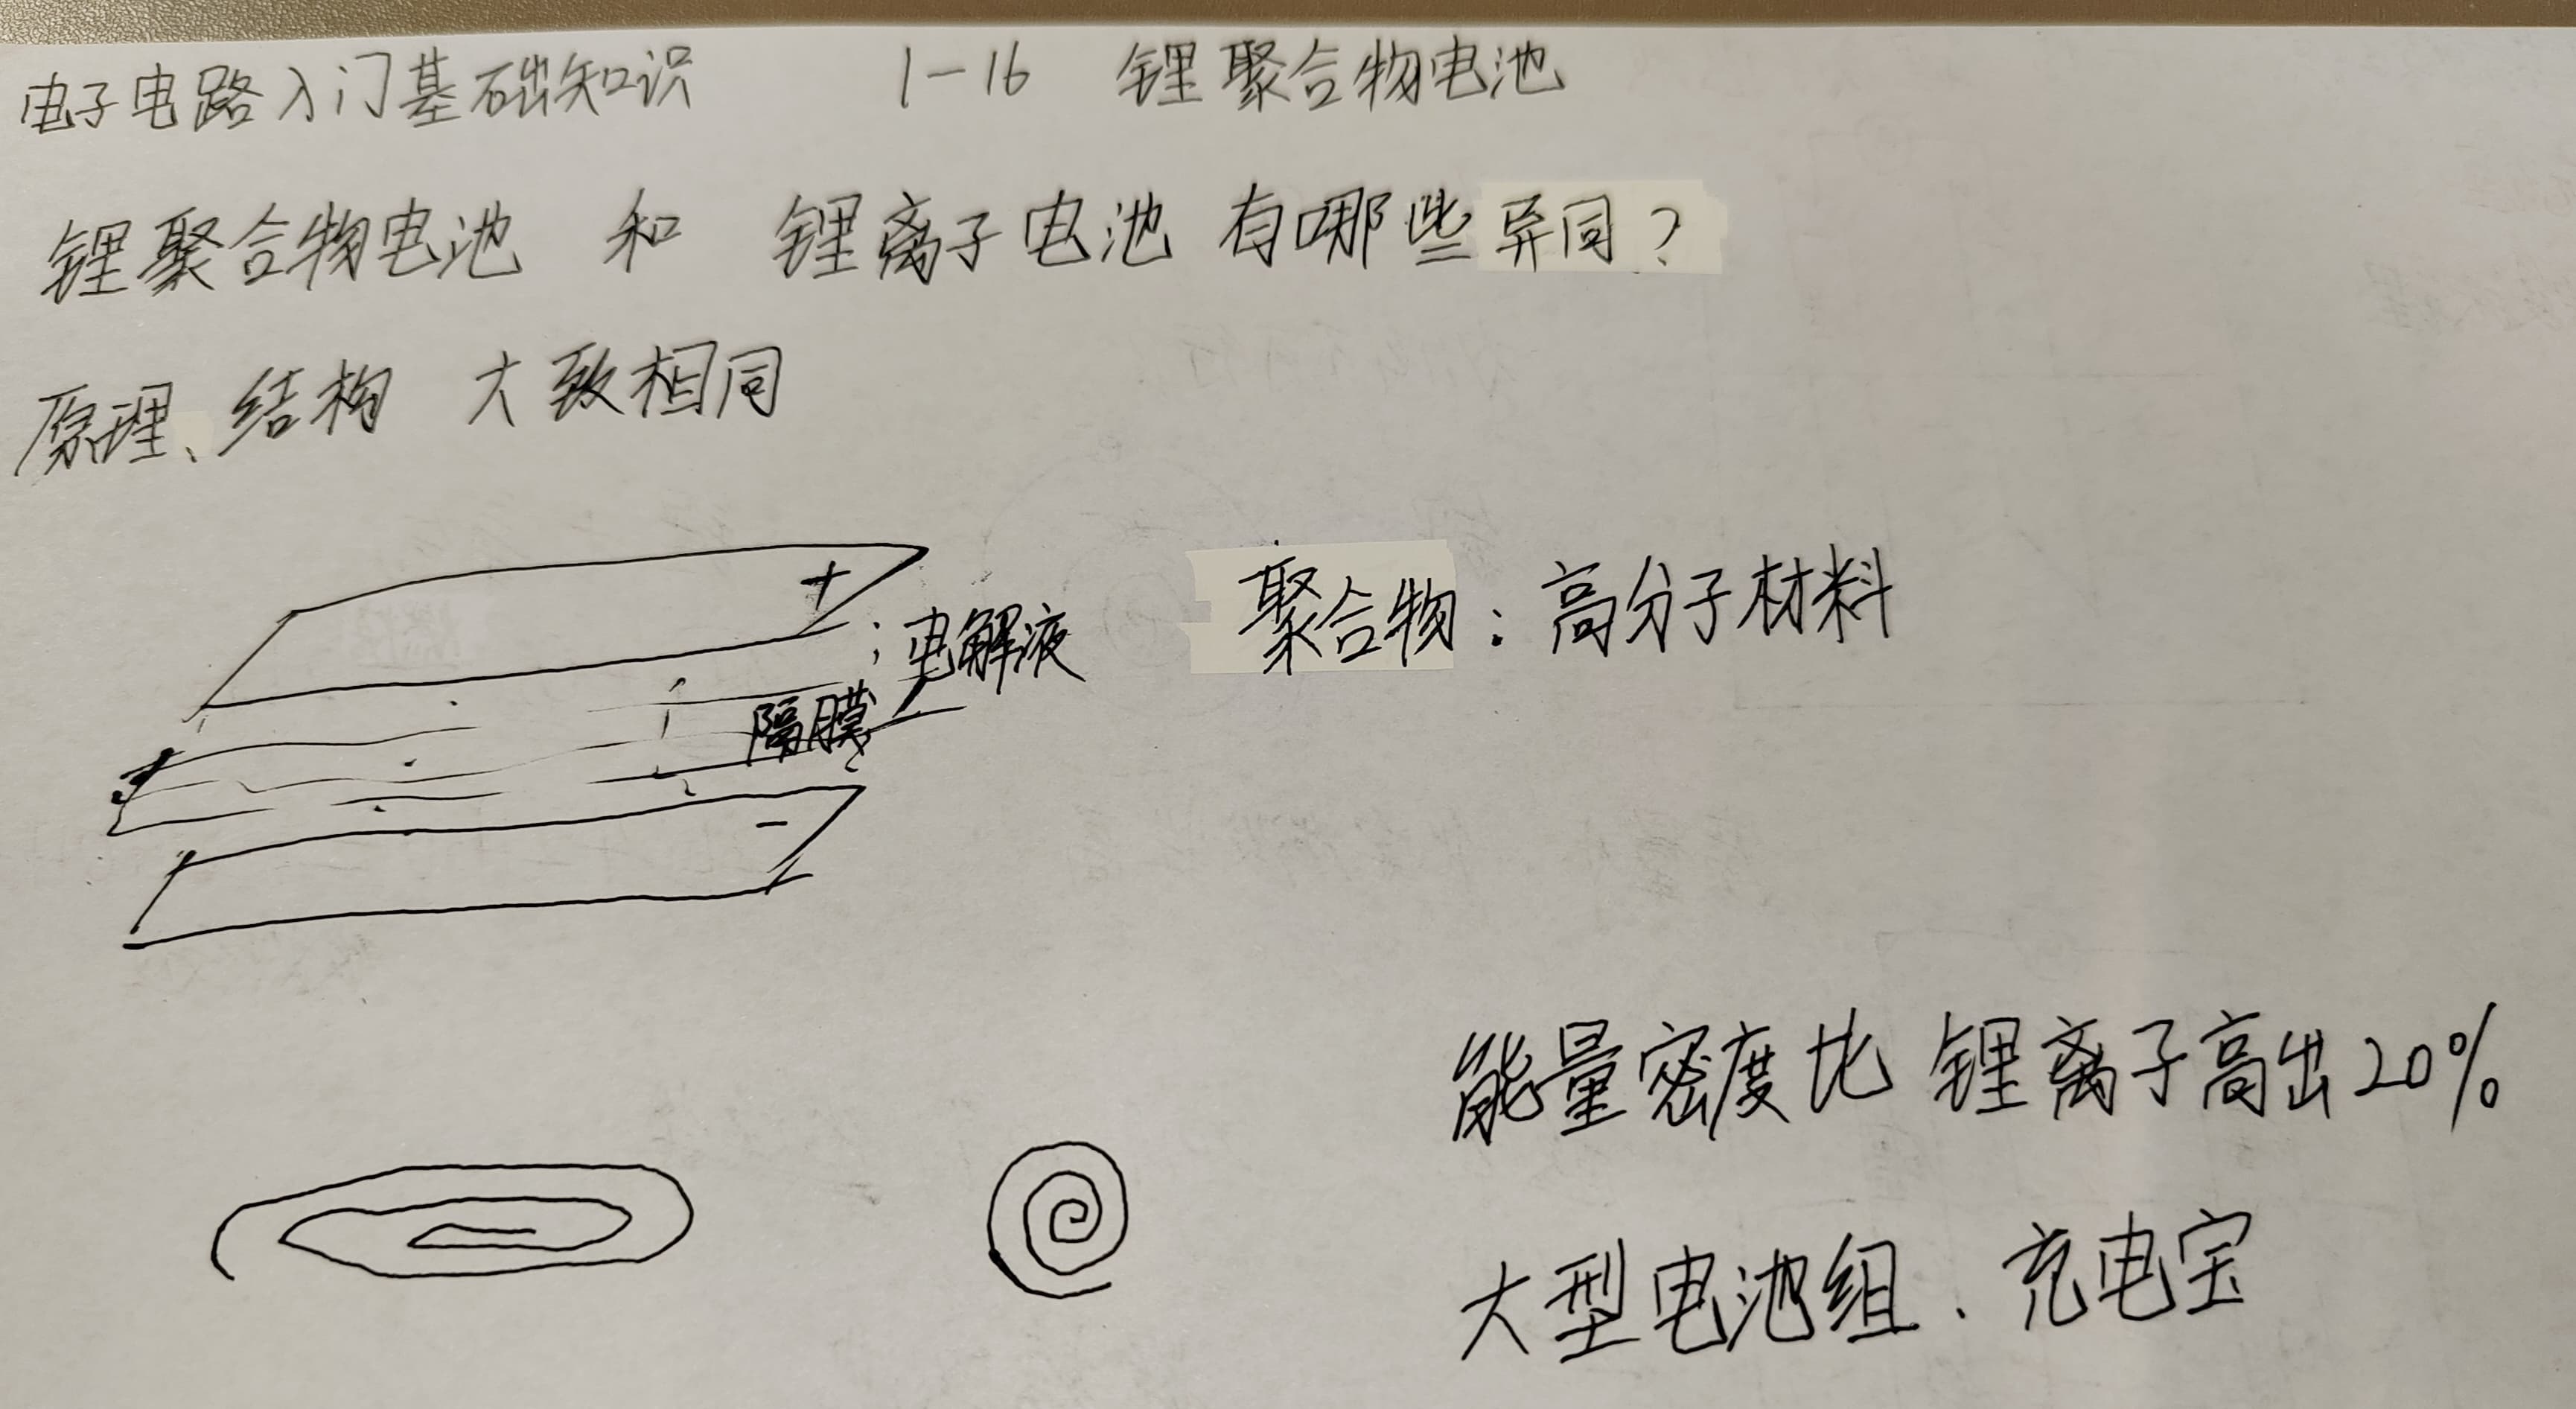 电子电路入门基础知识 1-16 锂聚合物电池
锂聚合物电池 和 锂离子电池 有哪些异同?
原理、结构 大致相同
+
电解液
隔膜
-
聚合物:高分子材料
能量密度比 锂离子高出20%
大型电池组、充电宝